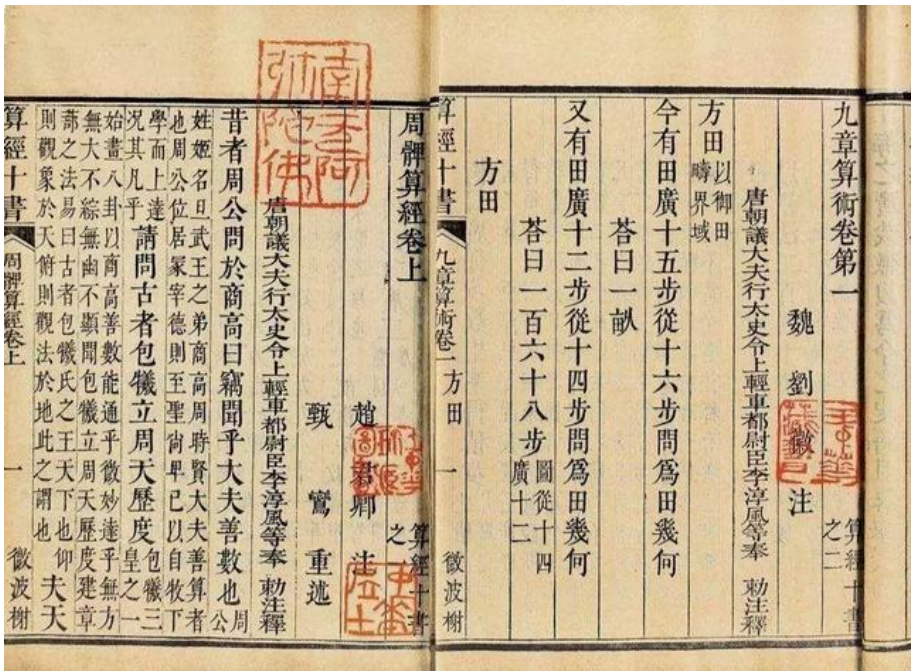 九章算術卷第一
算經十書之二
魏 劉徽 注
唐朝議大夫行太史令上輕車都尉臣李淳風等奉 勅注釋
方田以御田疇界域
今有田廣十五步從十六步問爲田幾何
荅曰一畝
又有田廣十二步從十四步問爲田幾何
荅曰一百六十八步圖從十四廣十二
方田
算經十書 九章算術卷一 方田 一 微波榭
周髀算經卷上
算經十書之
趙君卿 注
甄鸞 重述
唐朝議大夫行太史令上輕車都尉臣李淳風等奉 勅注釋
昔者周公問於商高曰竊聞乎大夫善數也周公
姓姬名旦武王之弟商高周時賢大夫善算者
也周公位居冢宰德則至聖尙卑己以自牧下
學而上達況其凡乎請問古者包犧立周天歷度包犧三皇之一
始畫八卦以商高善數能通乎微妙達乎無方
無大不綜無幽不顯聞包犧立周天歷度建章
蔀之法易曰古者包犧氏之王天下也仰
則觀象於天俯則觀法於地此之謂也夫天
算經十書 周髀算經卷上 一 微波榭
南无阿弥陀佛